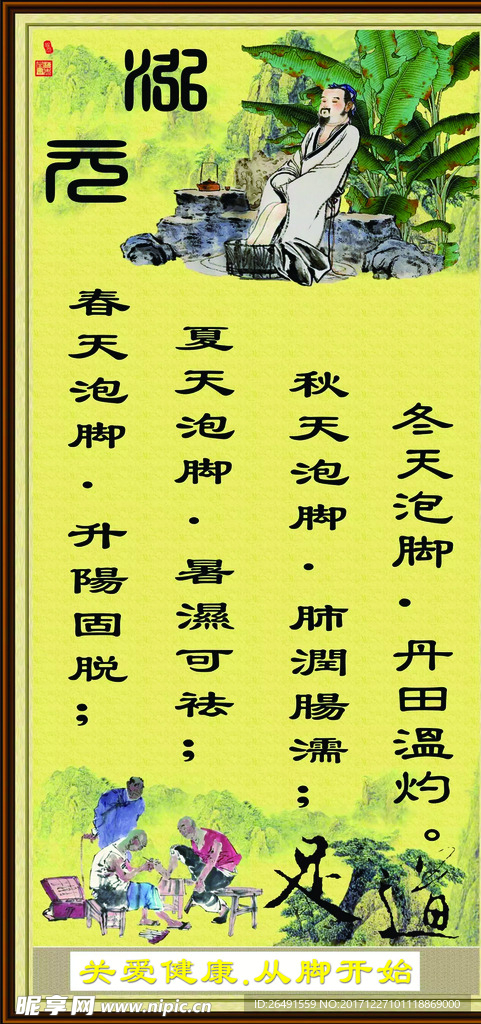 泓元
春天泡脚·升陽固脱；
夏天泡脚·暑濕可祛；
秋天泡脚·肺潤腸濡；
冬天泡脚·丹田溫灼。
足道
关爱健康.从脚开始
昵享网 www.nipic.cn
ID:26491559 NO:20171227101118869000